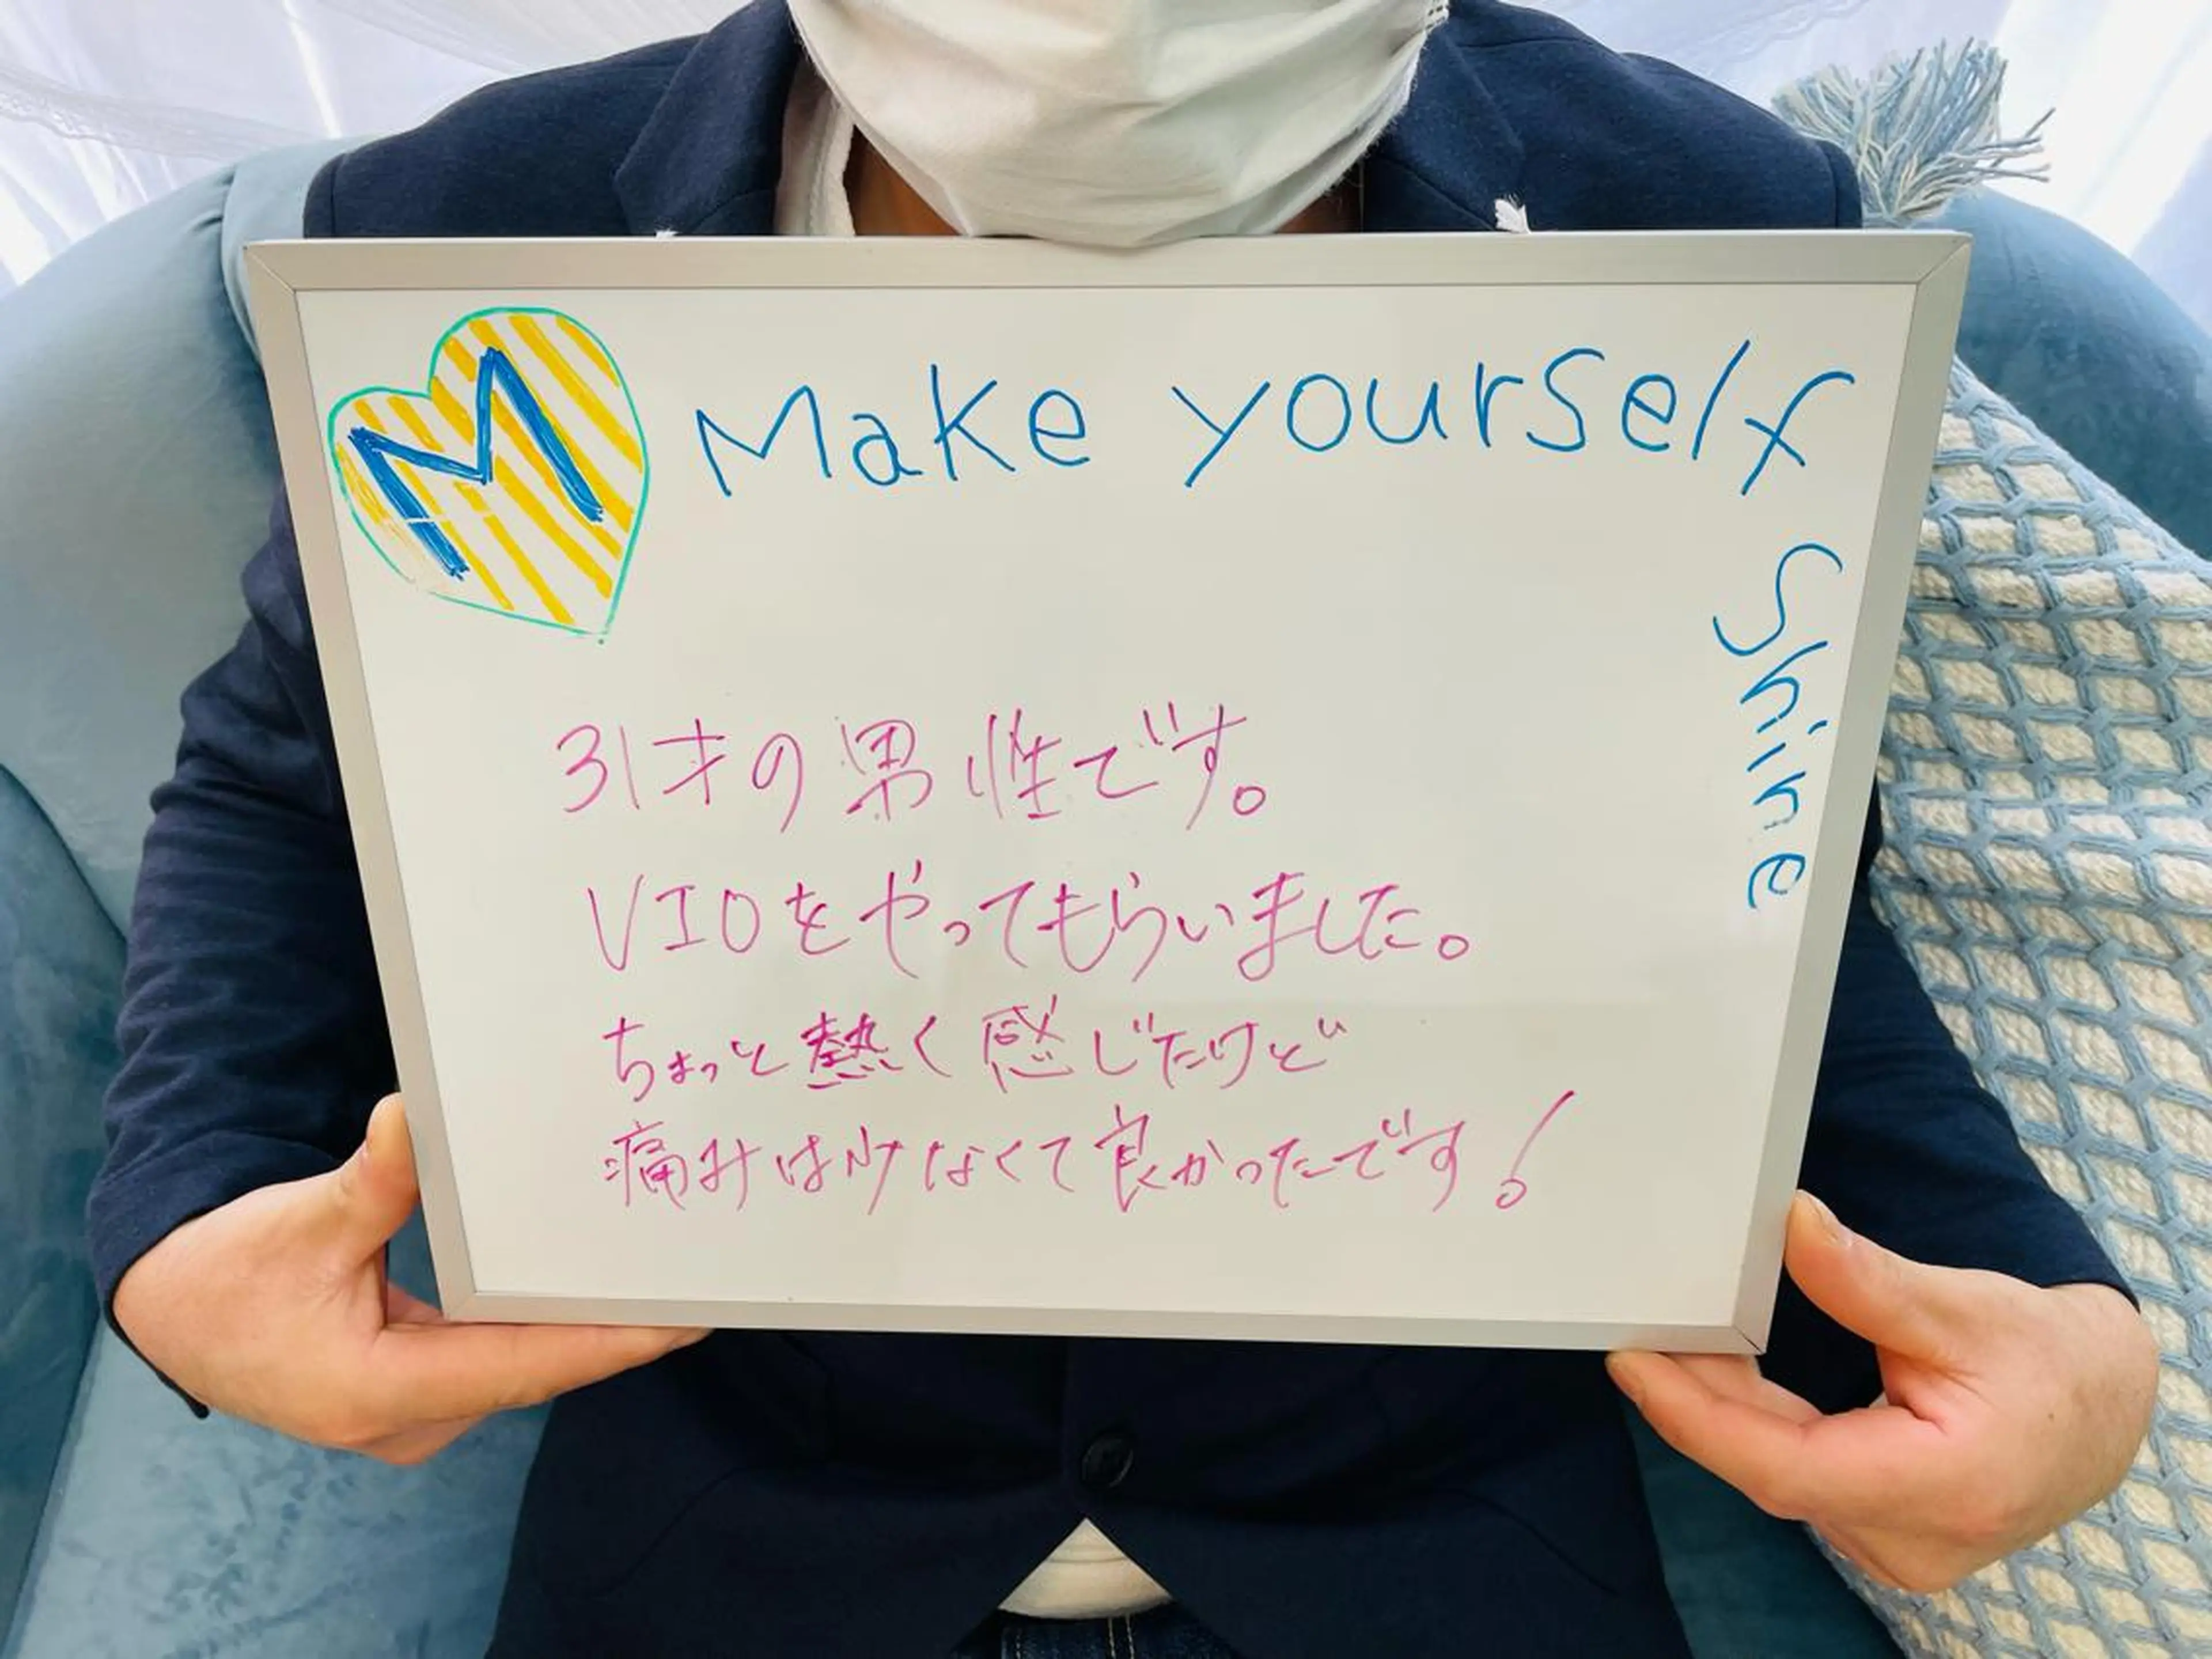 M
Make yourself
Shine
31才の男性です。
VIOをやってもらいました。
ちょっと熱く感じたけど
痛みは少なくて良かったです!